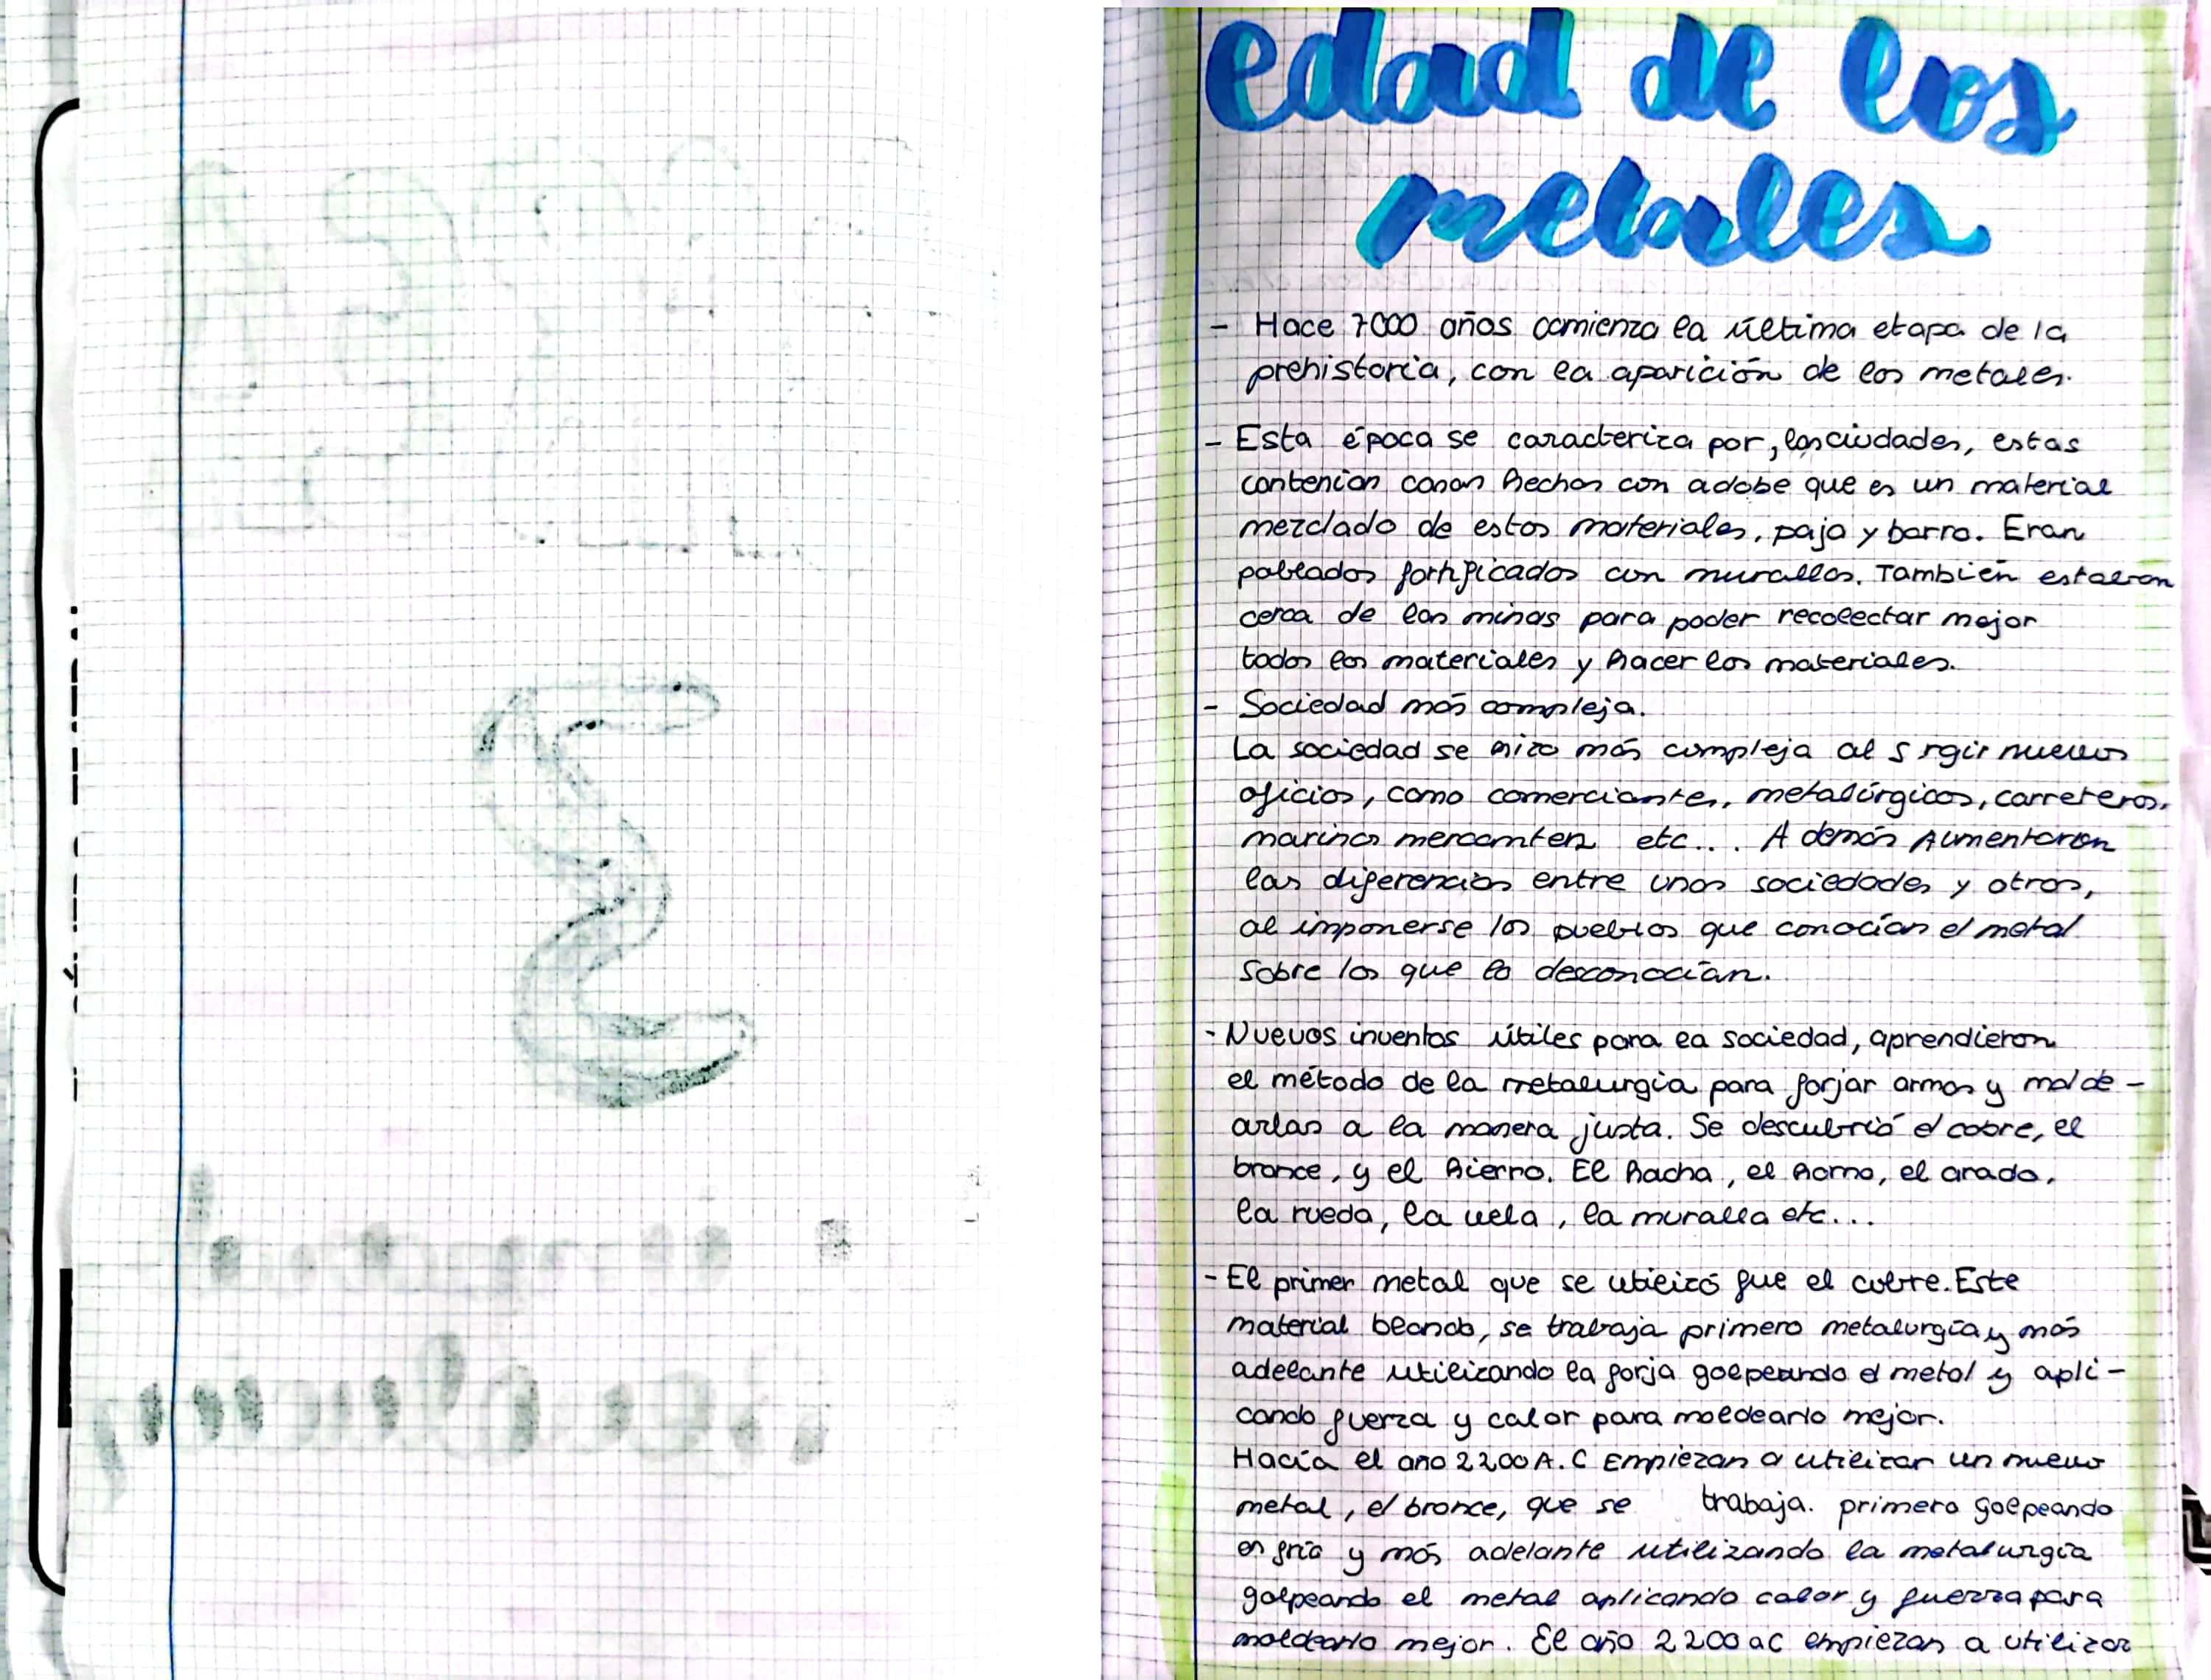 edad de los
metales
- Hace 7000 años comienza la última etapa de la
prehistoria, con la aparición de los metales.
- Esta época se caracteriza por, las ciudades, estas
contenian casas hechas con adobe que es un material
mezclado de estos materiales, paja y barro. Eran
poblados fortificados con murallas. También estaban
cerca de las minas para poder recolectar mejor
todos los materiales y hacer los materiales.
- Sociedad más compleja.
La sociedad se hizo más compleja al s rgir nuevos
oficios, como comerciantes, metalúrgicos, carreteros,
marinos mercantes etc... Además Aumentaron
las diferencias entre unas sociedades y otras,
al imponerse los pueblos que conocían el metal
sobre los que lo desconocían.
- Nuevos inventos útiles para la sociedad, aprendieron
el método de la metalurgia para forjar armas y molde-
arlas a la manera justa. Se descubrió el cobre, el
bronce, y el hierro. El hacha, el horno, el arado,
la rueda, la vela, la muralla etc...
- El primer metal que se utilizó fue el cobre. Este
material blando, se trabaja primero metalurgía y más
adelante utilizando la forja golpeando el metal y apli-
cando fuerza y calor para moldearlo mejor.
Hacía el año 2200 A.C Empiezan a utilizar un nuevo
metal, el bronce, que se trabaja. primero golpeando
en frío y más adelante utilizando la metalurgía
golpeando el metal aplicando calor y fuerza para
moldearlo mejor. El año 2200 ac empiezan a utilizar